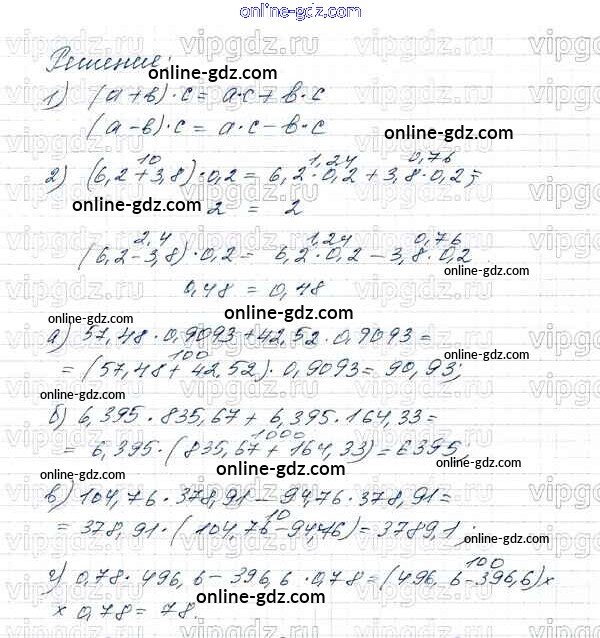 online-gdz.com
Решение:
online-gdz.com
1) (а+в)·с = а·с + в·с
(а-в)·с = а·с - в·с
online-gdz.com
10 1,24 0,76
2) (6,2+3,8)·0,2 = 6,2·0,2 + 3,8·0,2;
online-gdz.com
2 = 2
2,4 1,24 0,76
(6,2-3,8)·0,2 = 6,2·0,2 - 3,8·0,2
0,48 = 0,48
online-gdz.com
а) 57,48·0,9093 + 42,52·0,9093 =
100
= (57,48 + 42,52)·0,9093 = 90,93;
online-gdz.com online-gdz.com
б) 6,395·835,67 + 6,395·164,33 =
1000
= 6,395·(835,67 + 164,33) = 6395;
online-gdz.com online-gdz.com
в) 104,76·378,91 - 94,76·378,91 =
10
= 378,91·(104,76 - 94,76) = 3789,1;
online-gdz.com online-gdz.com
100
г) 0,78·496,6 - 396,6·0,78 = (496,6 - 396,6) х
х 0,78 = 78.
online-gdz.com
online-gdz.com